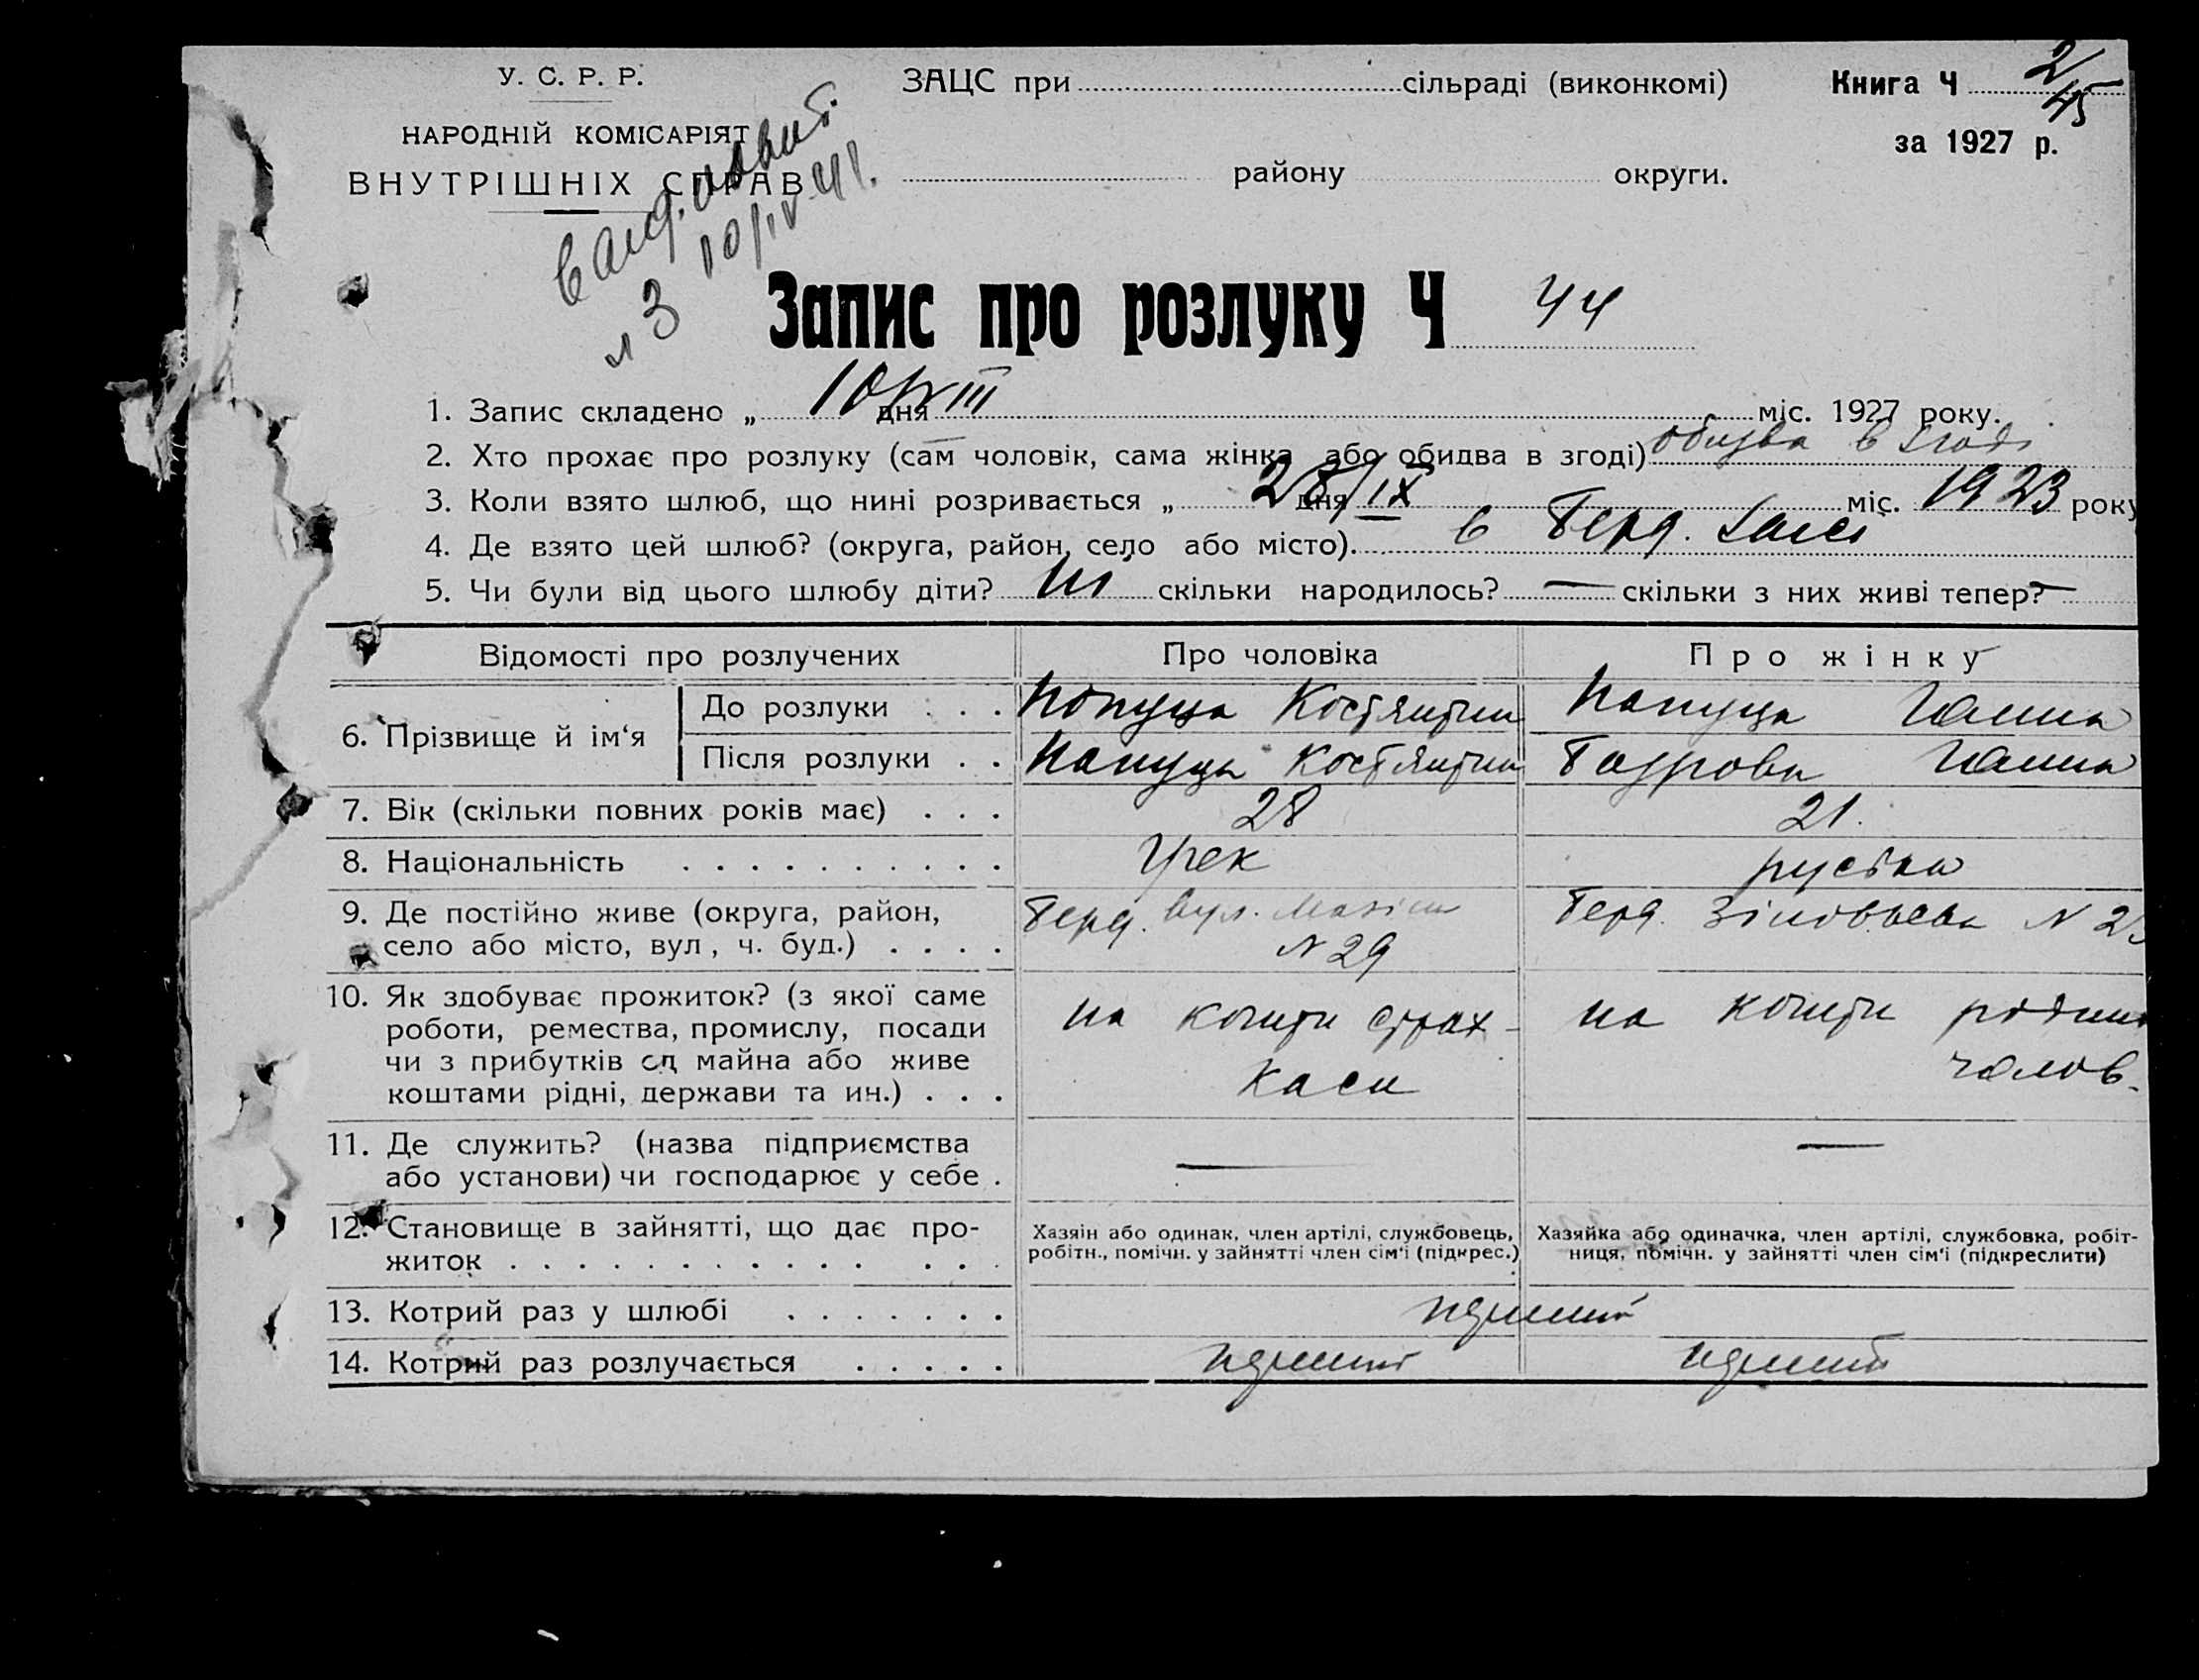 У. С. Р. Р.
НАРОДНІЙ КОМІСАРІЯТ
ВНУТРІШНІХ СПРАВ
ЗАЦС при сільраді (виконкомі)
району округи.
Книга Ч 2/45
за 1927 р.
10/IV 41.
Запис про розлуку Ч 44
1. Запис складено „ 10/VIII дня міс. 1927 року.
2. Хто прохає про розлуку (сам чоловік, сама жінка або обидва в згоді) обидва в згоді
3. Коли взято шлюб, що нині розривається „ 28/IX дня міс. 1923 року
4. Де взято цей шлюб? (округа, район, село або місто). в Берд. Загсі
5. Чи були від цього шлюбу діти? ні скільки народилось? — скільки з них живі тепер? —
Відомості про розлучених Про чоловіка Про жінку
6. Прізвище й ім‘я
До розлуки . . . Папуца Костянтин Папуца Ганна
Після розлуки . . Папуца Костянтин Ганна
7. Вік (скільки повних років має) . . . 28 21.
8. Національність . . . . . . . . . . Грек руська
9. Де постійно живе (округа, район,
село або місто, вул , ч. буд.) . . . .
Берд. вул.
N 29
Берд. Зіновьева N
10. Як здобуває прожиток? (з якої саме
роботи, ремества, промислу, посади
чи з прибутків од майна або живе
коштами рідні, держави та ин.) . . .
на кошти страх-
каси
на кошти
чолов.
11. Де служить? (назва підприємства
або установи) чи господарює у себе .
—
—
12. Становище в зайнятті, що дає про-
житок . . . . . . . . . . . . . . . .
Хазяїн або одинак, член артілі, службовець,
робітн., помічн. у зайнятті член сім‘ї (підкрес.)
Хазяйка або одиначка, член артілі, службовка, робіт-
ниця, помічн. у зайнятті член сім‘ї (підкреслити)
13. Котрий раз у шлюбі . . . . . . . перший
14. Котрий раз розлучається . . . . . перший перший